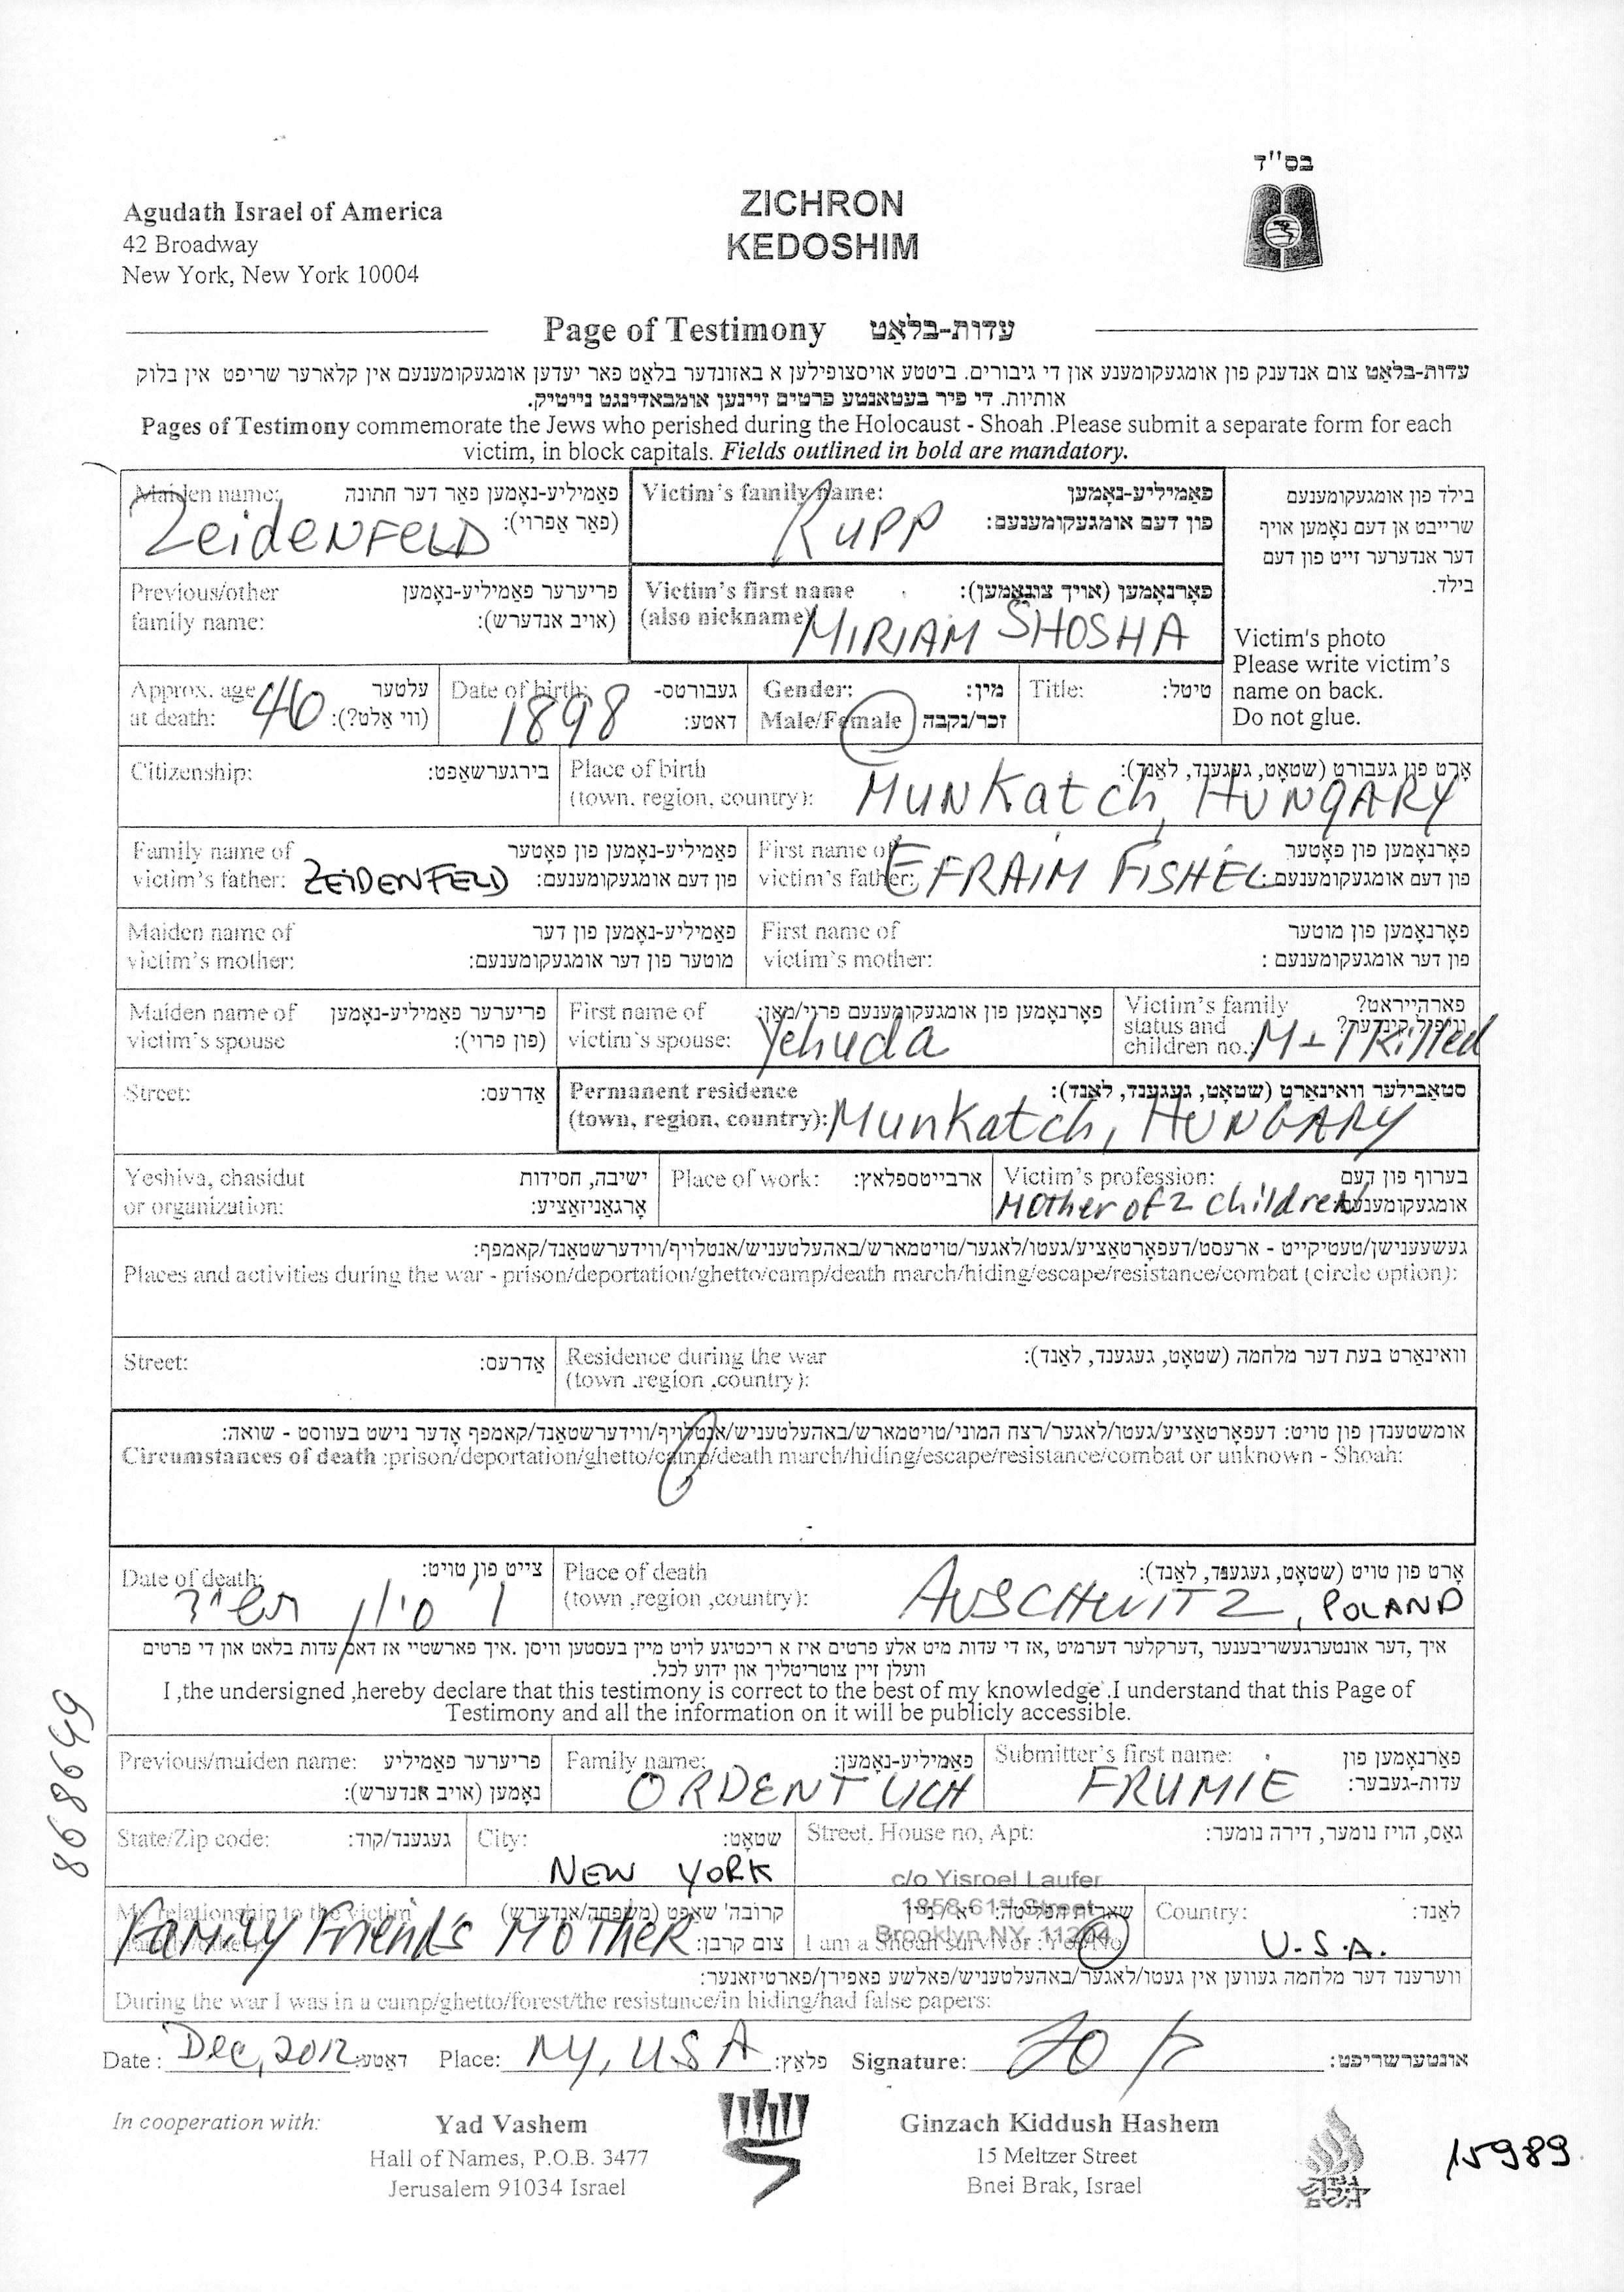 בס"ד
Agudath Israel of America
42 Broadway
New York, New York 10004
ZICHRON
KEDOSHIM
Page of Testimony עדות-בלאַט
עדות-בלאַט צום אנדענק פון אומגעקומענע און די גיבורים. ביטטע אויסצופילען א באזונדער בלאַט פאר יעדען אומגעקומענעם אין קלארער שריפט אין בלוק
אותיות. די פיר בעטאָנטע פרטים זיינען אומבאדינגט נייטיק.
Pages of Testimony commemorate the Jews who perished during the Holocaust - Shoah .Please submit a separate form for each
victim, in block capitals. Fields outlined in bold are mandatory.
Maiden name: פאַמיליע-נאָמען פאַר דער חתונה
(פאַר אַפרוי):
ZeidENFELD
Victim's family name: פאַמיליע-נאָמען
פון דעם אומגעקומענעם:
RUPP
בילד פון אומגעקומענעם
שרייבט אן דעם נאָמען אויף
דער אנדערער זייט פון דעם
בילד.
Victim's photo
Please write victim's
name on back.
Do not glue.
Previous/other פריערער פאַמיליע-נאָמען
family name: (אויב אנדערש):
Victim's first name פאָרנאָמען (אויך צונאָמען):
(also nickname) MIRIAM SHOSHA
Approx. age עלטער
at death: 46 (ווי אַלט?):
Date of birth: געבורטס-
1898 דאַטע:
Gender: מין:
Male/Female זכר/נקבה
Title: טיטל:
Citizenship: בירגערשאַפט:
Place of birth אָרט פון געבורט (שטאָט, געגענד, לאַנד):
(town, region, country): MUNKatch, HUNGARY
Family name of פאַמיליע-נאָמען פון פאָטער
victim's father: ZEIDENFELD פון דעם אומגעקומענעם:
First name of פאָרנאָמען פון פאָטער
victim's father: EFRAIM FISHEL פון דעם אומגעקומענעם:
Maiden name of פאַמיליע-נאָמען פון דער
victim's mother: מוטער פון דער אומגעקומענעם:
First name of פאָרנאָמען פון מוטער
victim's mother: פון דער אומגעקומענעם :
Maiden name of פריערער פאַמיליע-נאָמען
victim's spouse (פון פרוי):
First name of פאָרנאָמען פון אומגעקומענעם פרוי/מאַן:
victim's spouse: Yehuda
Victim's family פארהייראט?
status and
children no.: M + 1 Killed
Street: אַדרעס:
Permanent residence סטאַבילער וואינאָרט (שטאָט, געגענד, לאַנד):
(town, region, country): Munkatch, HUNGARY
Yeshiva, chasidut ישיבה, חסידות
or organization: אָרגאַניזאַציע:
Place of work: ארבייטספלאַץ:
Victim's profession: בערוף פון דעם
Mother of 2 children אומגעקומענעם
געשעענישן/טעטיקייט - ארעסט/דעפאָרטאַציע/געטו/לאגער/טויטמארש/באהעלטעניש/אנטלויף/ווידערשטאַנד/קאמפף:
Places and activities during the war - prison/deportation/ghetto/camp/death march/hiding/escape/resistance/combat (circle option):
Street: אַדרעס:
Residence during the war וואינאָרט בעת דער מלחמה (שטאָט, געגענד, לאַנד):
(town ,region ,country):
אומשטענדן פון טויט: דעפאָרטאַציע/געטו/לאגער/רצח המוני/טויטמארש/באהעלטעניש/אנטלויף/ווידערשטאַנד/קאמפף אָדער נישט בעווסט - שואה:
Circumstances of death :prison/deportation/ghetto/camp/death march/hiding/escape/resistance/combat or unknown - Shoah:
Date of death: צייט פון טויט:
ו' סיון תש"ד
Place of death אָרט פון טויט (שטאָט, געגענד, לאַנד):
(town ,region ,country): AUSCHWITZ, POLAND
איך ,דער אונטערגעשריבענער ,דערקלער דערמיט ,אז די עדות מיט אלע פרטים איז א ריכטיגע לויט מיין בעסטען וויסן .איך פארשטיי אז דאס עדות בלאט און די פרטים
וועלן זיין צוטריטליך און ידוע לכל.
I ,the undersigned ,hereby declare that this testimony is correct to the best of my knowledge .I understand that this Page of
Testimony and all the information on it will be publicly accessible.
Previous/maiden name: פריערער פאַמיליע
נאָמען (אויב אנדערש):
Family name: פאַמיליע-נאָמען:
ORDENTLICH
Submitter's first name: פאָרנאָמען פון
FRUMIE עדות-געבער:
State/Zip code: געגענד/קוד:
City: שטאָט:
NEW YORK
Street, House no, Apt: גאַס, הויז נומער, דירה נומער:
c/o Yisroel Laufer
1858 61st Street
Brooklyn NY. 11204
My relationship to the victim קרובה'שאַפט (משפחה/אנדערש)
Family Friend's MOTHER צום קרבן:
I am a Shoah survivor :Yes/No
Country: לאַנד:
U.S.A.
ווערענד דער מלחמה געווען אין געטו/לאגער/באהעלטעניש/פאלשע פאפירן/פארטיזאנער:
During the war I was in a camp/ghetto/forest/the resistance/in hiding/had false papers:
Date : Dec, 2012 דאַטע: Place: NY, USA פלאַץ: Signature: אונטערשריפט:
In cooperation with:
Yad Vashem
Hall of Names, P.O.B. 3477
Jerusalem 91034 Israel
Ginzach Kiddush Hashem
15 Meltzer Street
Bnei Brak, Israel
15989
8686649